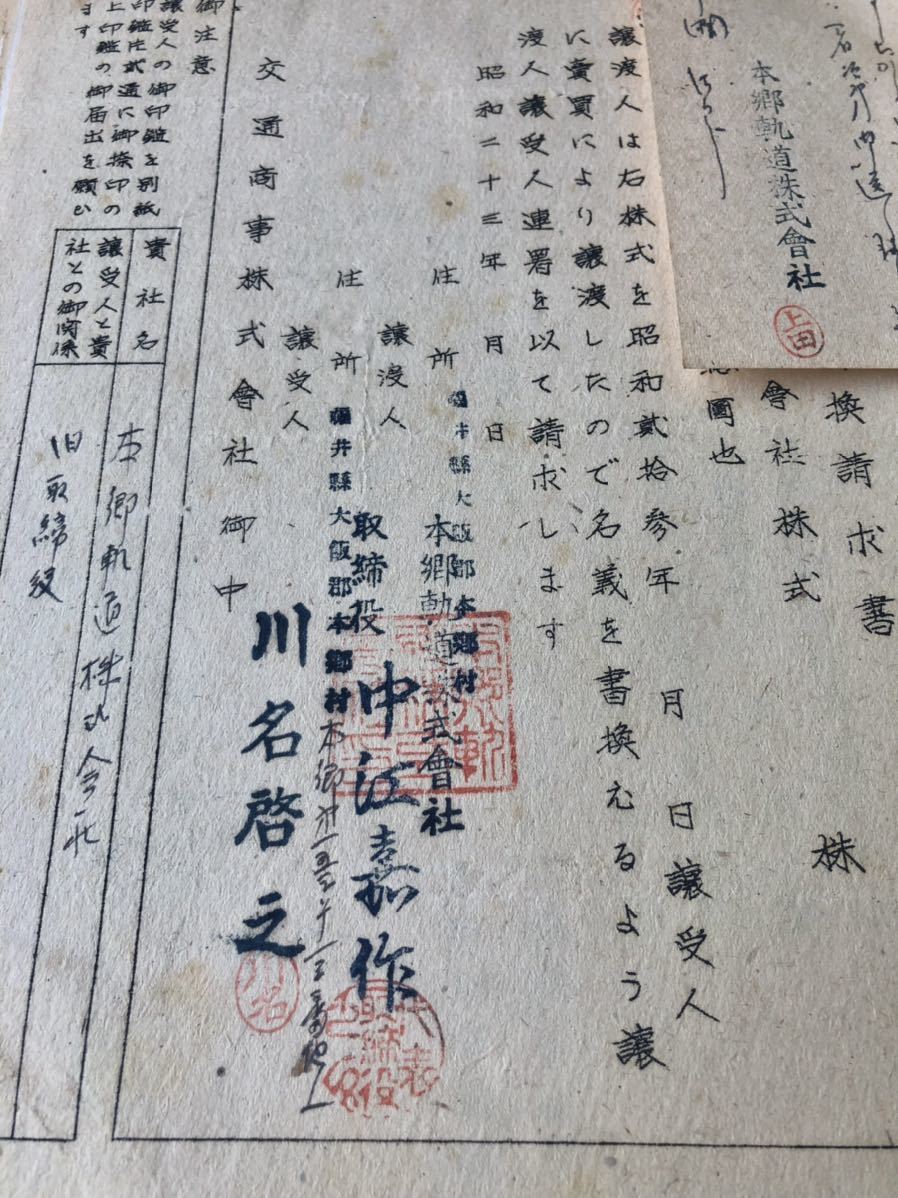 本郷軌道株式會社
上田
換請求書
會社株式
株
圓也
月 日譲受人
譲渡人は右株式を昭和貳拾参年
に賣買により譲渡したので名義を書換えるよう譲
渡人譲受人連署を以て請求します
昭和二十三年 月 日
住所 福井縣大飯郡本郷村
本郷軌道株式會社
譲渡人 取締役 中江嘉作
住所 福井縣大飯郡本郷村本郷
譲受人 川名啓之
川名
交通商事株式會社御中
御注意
譲受人の御印鑑を別紙
印鑑弐通に御捺印の
上印鑑の御届出を願ひ
ます
貴社名 本郷軌道株式会社
譲受人と貴社との御関係 旧取締役